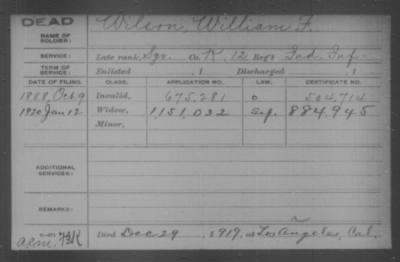 DEAD Wilson, William F.
NAME OF SOLDIER:
SERVICE: Late rank, Co. K, 12 Reg't Ind. Inf.
TERM OF SERVICE: Enlisted 1 Discharged 1
DATE OF FILING. CLASS. APPLICATION NO. LAW. CERTIFICATE NO.
1888, Oct. 9 Invalid, 675,281 504,714
1920 Jan 12 Widow, 1,151,032 884,945
Minor,
ADDITIONAL SERVICES:
REMARKS:
Died Dec 29, 1919, at Los Angeles, Cal.